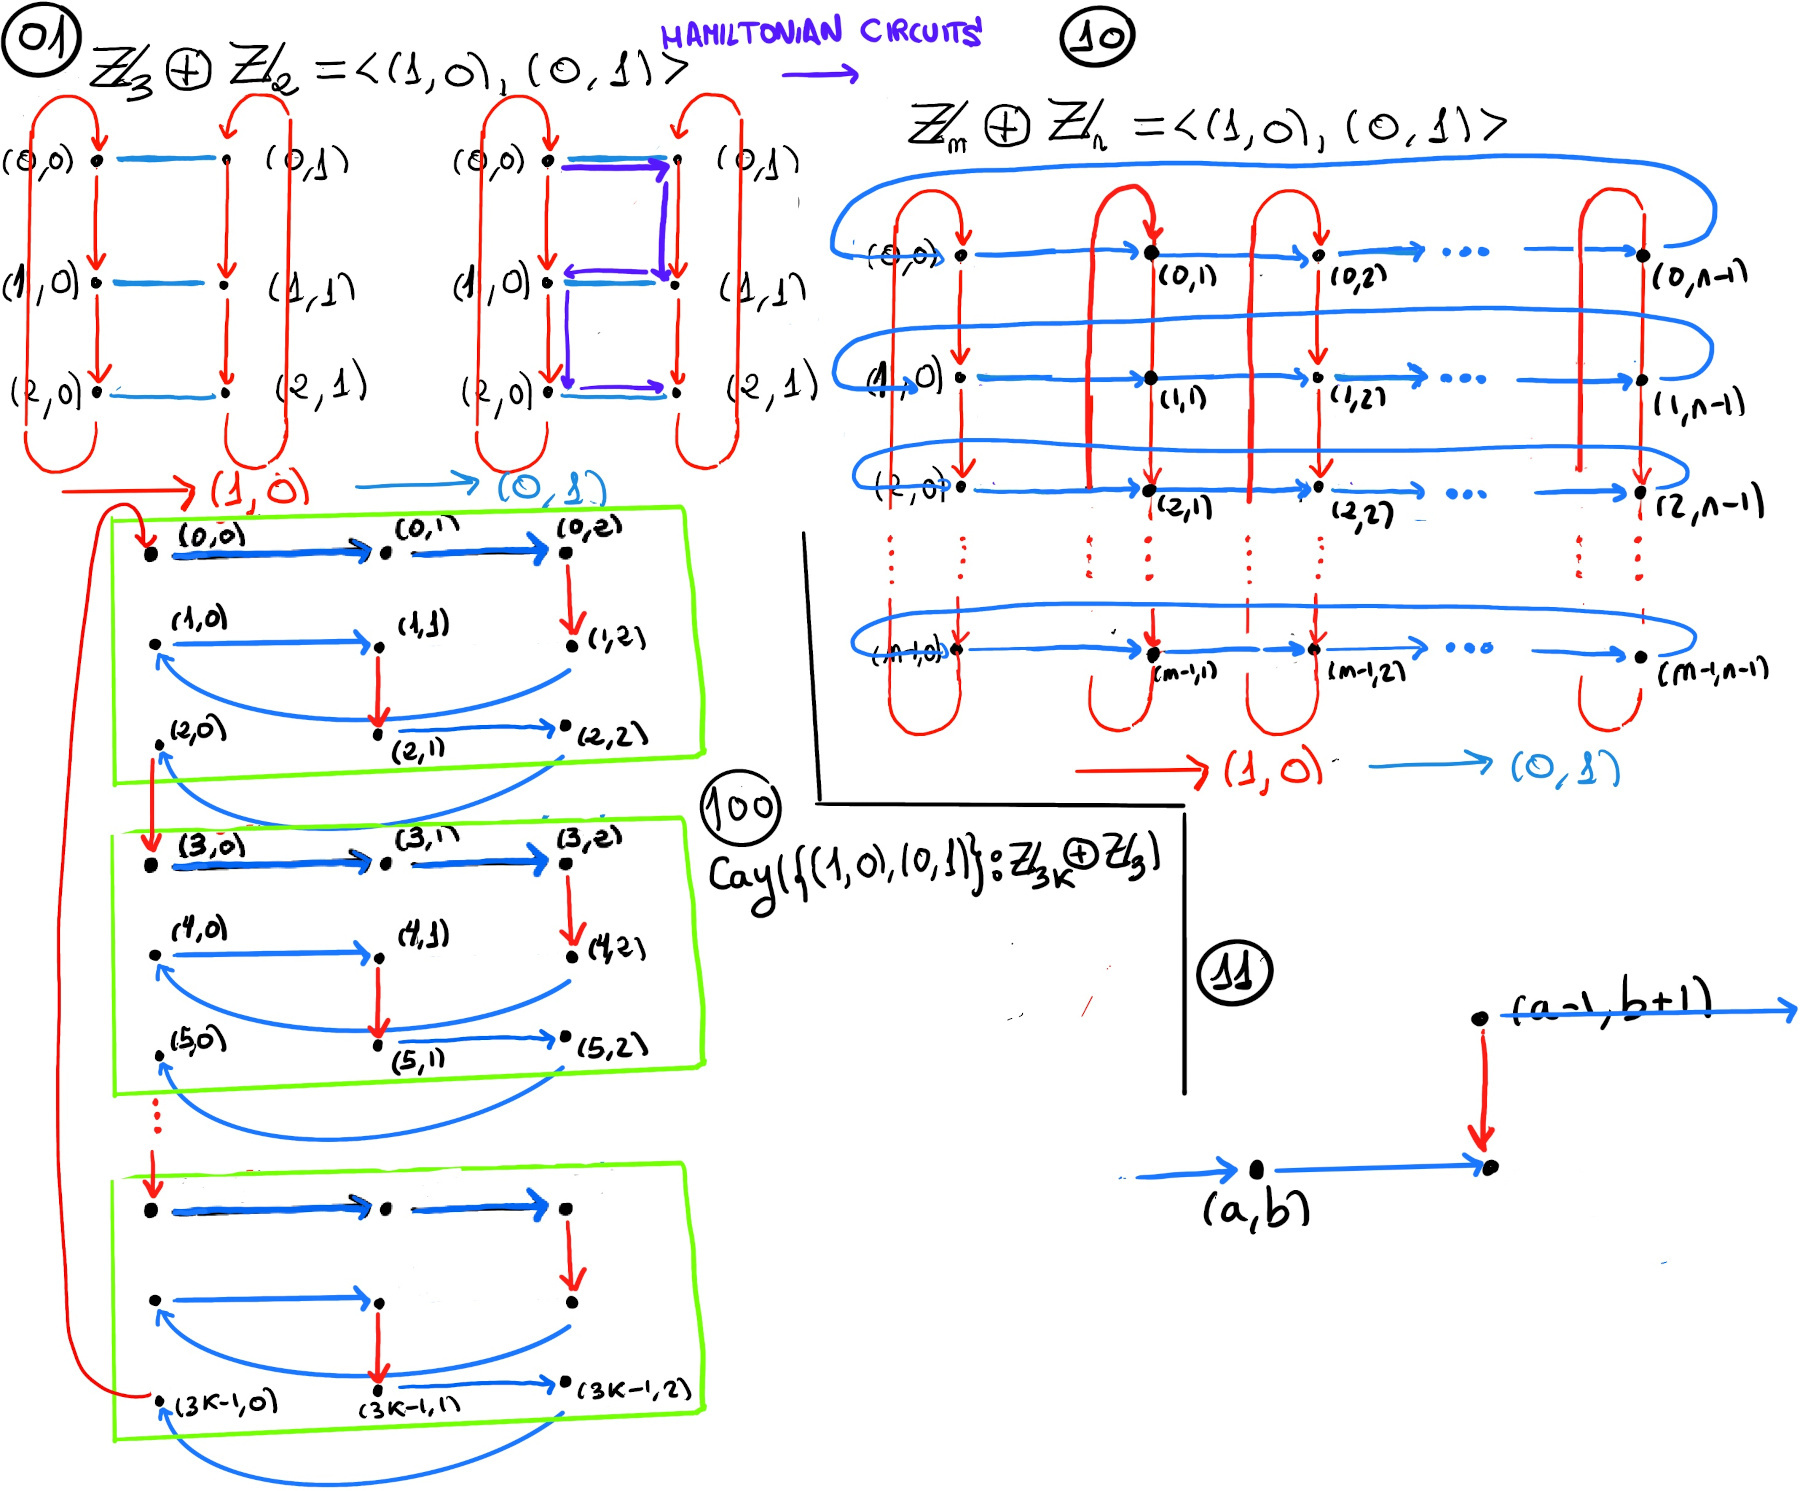 01
ℤ₃ ⊕ ℤ₂ = <(1,0), (0,1)>
HAMILTONIAN CIRCUITS
(0,0) (0,1)
(1,0) (1,1)
(2,0) (2,1)
(0,0) (0,1)
(1,0) (1,1)
(2,0) (2,1)
(1,0) (0,1)
10
ℤₘ ⊕ ℤₙ = <(1,0), (0,1)>
(0,0) (0,1) (0,2) ... (0,n-1)
(1,0) (1,1) (1,2) ... (1,n-1)
(2,0) (2,1) (2,2) ... (2,n-1)
(m-1,0) (m-1,1) (m-1,2) ... (m-1,n-1)
(1,0) (0,1)
100
Cay({(1,0),(0,1)}:ℤ₃ₖ⊕ℤ₃)
(0,0) (0,1) (0,2)
(1,0) (1,1) (1,2)
(2,0) (2,1) (2,2)
(3,0) (3,1) (3,2)
(4,0) (4,1) (4,2)
(5,0) (5,1) (5,2)
(3K-1,0) (3K-1,1) (3K-1,2)
11
(a-1,b+1)
(a,b)